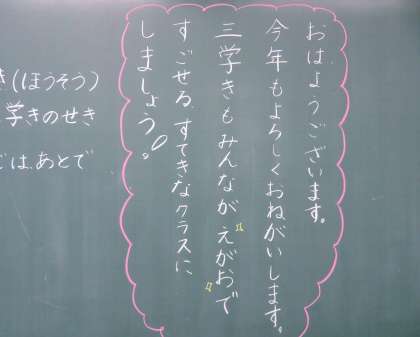 おはようございます。
今年もよろしくおねがいします。
三学きもみんながえがおで
すごせるすてきなクラスに
しましょう!。
(ほうそう)
学きのせき
は、あとで